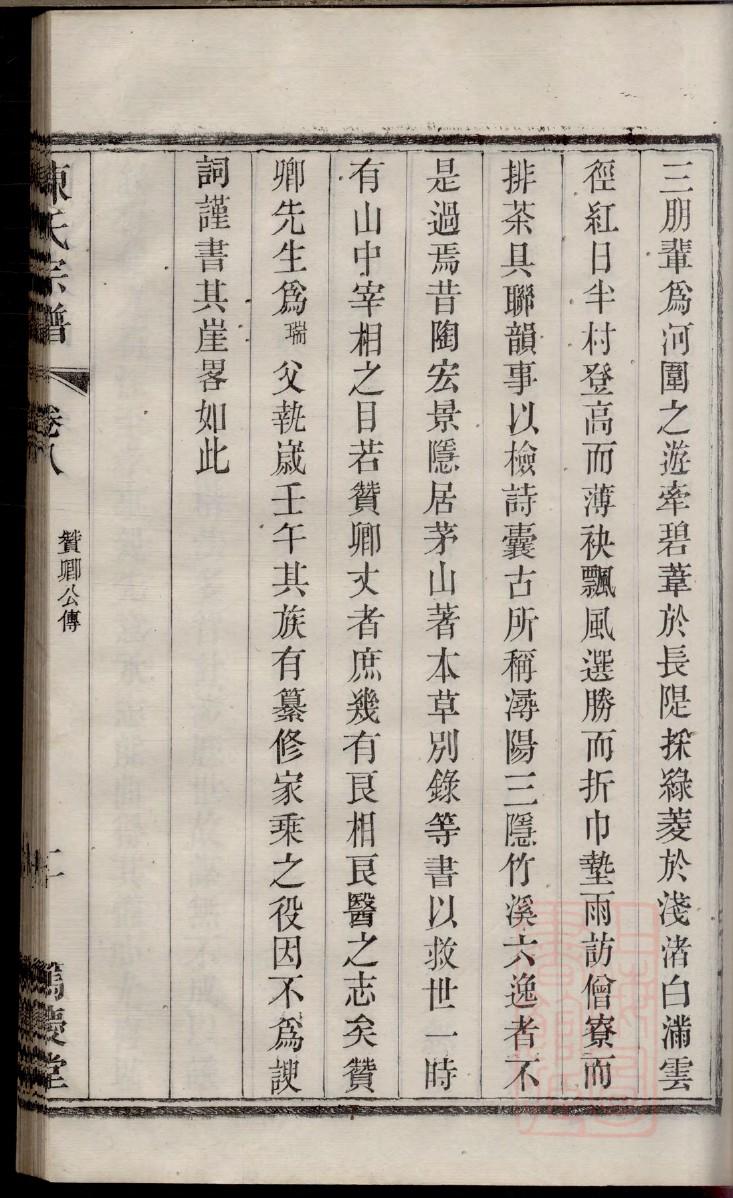 三朋輩爲河圍之遊牽碧葦於長隄採綠菱於淺渚白滿雲
徑紅日半村登高而薄袂飄風選勝而折巾墊雨訪僧寮而
排茶具聯韻事以檢詩囊古所稱潯陽三隱竹溪六逸者不
是過焉昔陶宏景隱居茅山著本草別錄等書以救世一時
有山中宰相之目若贊卿丈者庶幾有良相良醫之志矣贊
卿先生爲瑞父執歲壬午其族有纂修家乘之役因不爲諛
詞謹書其崖畧如此
陳氏宗譜 卷八 贊卿公傳 二 篤慶堂